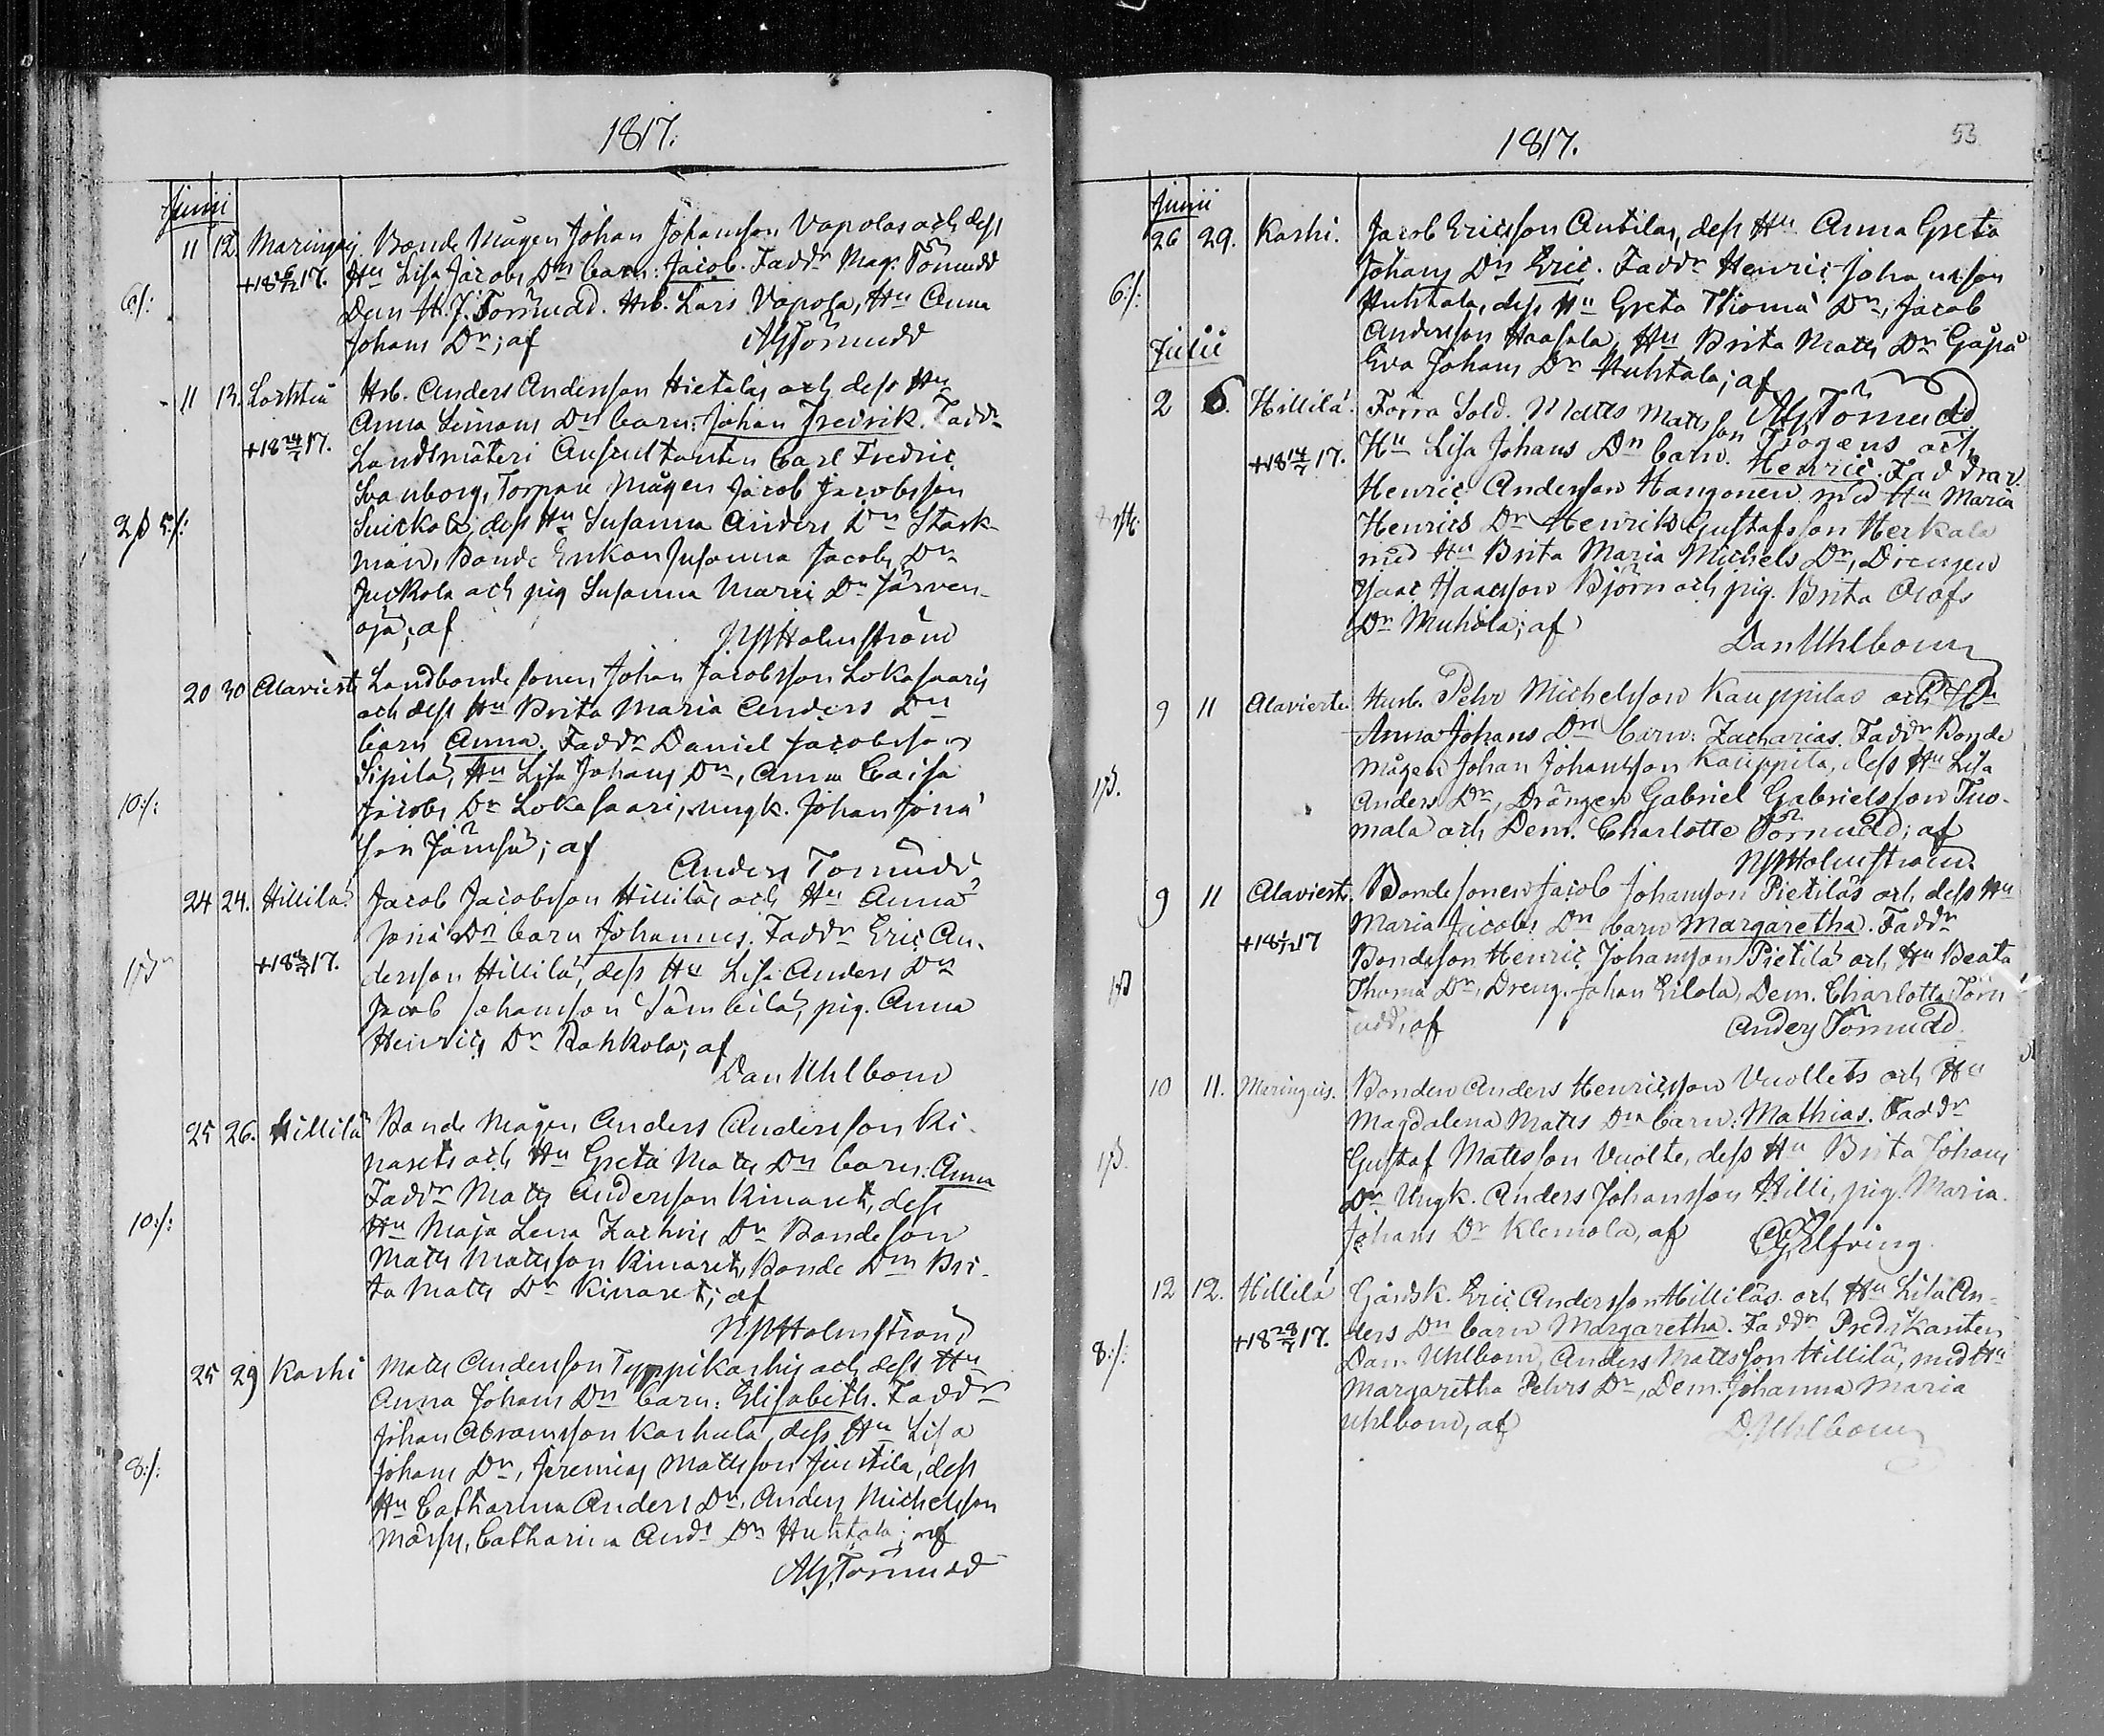 1817.
Junii
11 12. Maringais Bonde Mågen Johan Johansson Vapolas och dess
+18 17. Hu Lisa Jacobs Dn barn: Jacob. Faddr Mag. Törnudd
6/: Den H. J. Törnudd. Hb. Lars Vapola, Hu Anna
Johans Dr; af AGTörnudd
11 13. Lochteå Hb. Anders Andersson Hietalas och dess Hu
Anna Simons Dn barn: Johan Fredrik. Faddr
+18 24/7 17. Landtmäteri Auscultanten Carl Fredric
Svanborg, Torpare Mågen Jacob Jacobsson
dess Hu Susanna Anders Dr Stark-
man, Bonde Enkan Susanna Jacobs Dr
Juckola och pig Susanna Dr Järven-
oja; af
NPHolmström
20 30 Alavierte Landbonde sonen Johan Jacobsson Lokasaaris
och dess Hu Brita Maria Anders Dn
barn Anna. Faddr Daniel Jacobsson
Sipilä, Hu Lisa Johans Dr, Anna Caisa
10:/: Jacobs Dr Lokasaari, ungk. Johan Jona
son Jämsä; af
Anders Törnudd
24 24. Hillilä Jacob Jacobsson Hilliläs och Hu Anna
Jona Dn barn Johannes. Faddr Eric An-
+18 17. dersson Hillilä, dess Hu Lisa Anders Dr
Jacob Johansson pig. Anna
Henrics Dr Rahkola; af
Dan Uhlbom
25 26. Hillilä Bonde Mågen Anders Andersson Ki-
narets och Hu Greta Matts Dn barn: Anna
Faddr Matts Andersson Kinaret, dess
10:/: Hu Maja Lena Zachris Dr Bondeson
Matts Mattsson Kinaret, Bonde Dr Bri-
ta Matts Dr Kinaret; af
NPHolmström
25 29 Kashi Matts Andersson Typpikashis och dess Hu
Anna Johans Dn barn: Elisabeth. Faddr
Johan Abramsson Kashula, dess Hu Lisa
8:/: Johans Dr, Jeremias Mattsson Juntila, dess
Hu Catharina Anders Dr, Anders Michelsson
Märsy, Catharina Ands Dr Huhtala; af
AGTörnudd
1817. 53
Junii
26 29. Kashi. Jacob Ericsson Antilas, dess Hu Anna Greta
Johans Dn Eric. Faddr Henric Johansson
6:/: Huhtala, dess Hu Greta Thomä Dr, Jacob
Andersson Haasala, Hu Brita Matts Dr
Eva Johans Dr Huhtala; af
AGTörnudd
Julii
2 6. Hillilä. Förra Sold. Matts Mattsson Trögens och
+18 14/7 17. Hu Lisa Johans Dn barn. Henric. Faddrar
Henric Andersson Hangonen med Hu Maria
Henrics Dr Henrik Gustafsson Herkala
med Hu Brita Maria Michels Dr, Drengen
Isaac Isaacsson Björn och pig. Brita Olofs
Dr Muhola; af
Dan Uhlbom
9 11 Alavierte. Husb. Pehr Michelsson Kauppilas och Hu
Anna Johans Dn barn: Zacharias. Faddr Bonde
Mågen Johan Johansson Kauppila, dess Hu Lisa
Anders Dr, Drängen Gabriel Gabrielsson Tuo-
mala och Dem. Charlotte Törnudd; af
NPHolmström
9 11 Alavierte. Bondesonen Jacob Johansson Pietiläs och dess Hu
Maria Jacobs Dn barn Margaretha. Faddr
+18 17 Bondeson Henric Johansson Pietilä och Hu Beata
Thomä Dr, Dreng. Johan Eilola, Dem. Charlotta Törn
udd, af Anders Törnudd
10 11. Maringais. Bonden Anders Henricsson Vuollets och Hu
Magdalena Matts Dn barn: Mathias. Faddr
Gustaf Mattsson Vuolte, dess Hu Brita Johans
Dr Ungk. Anders Johansson Hilli, pig. Maria
Johans Dr Klemola, af CGElfving
12 12. Hillilä Gårdsk. Eric Andersson Hilliläs och Hu Lisa An-
+18 28/7 17. ders Dn barn Margaretha. Faddr Predikanten
8:/: Dan. Uhlbom, Anders Mattsson Hillilä, med Hu
Margaretha Pehrs Dr, Dem. Johanna Maria
Uhlbom, af D. Uhlbom